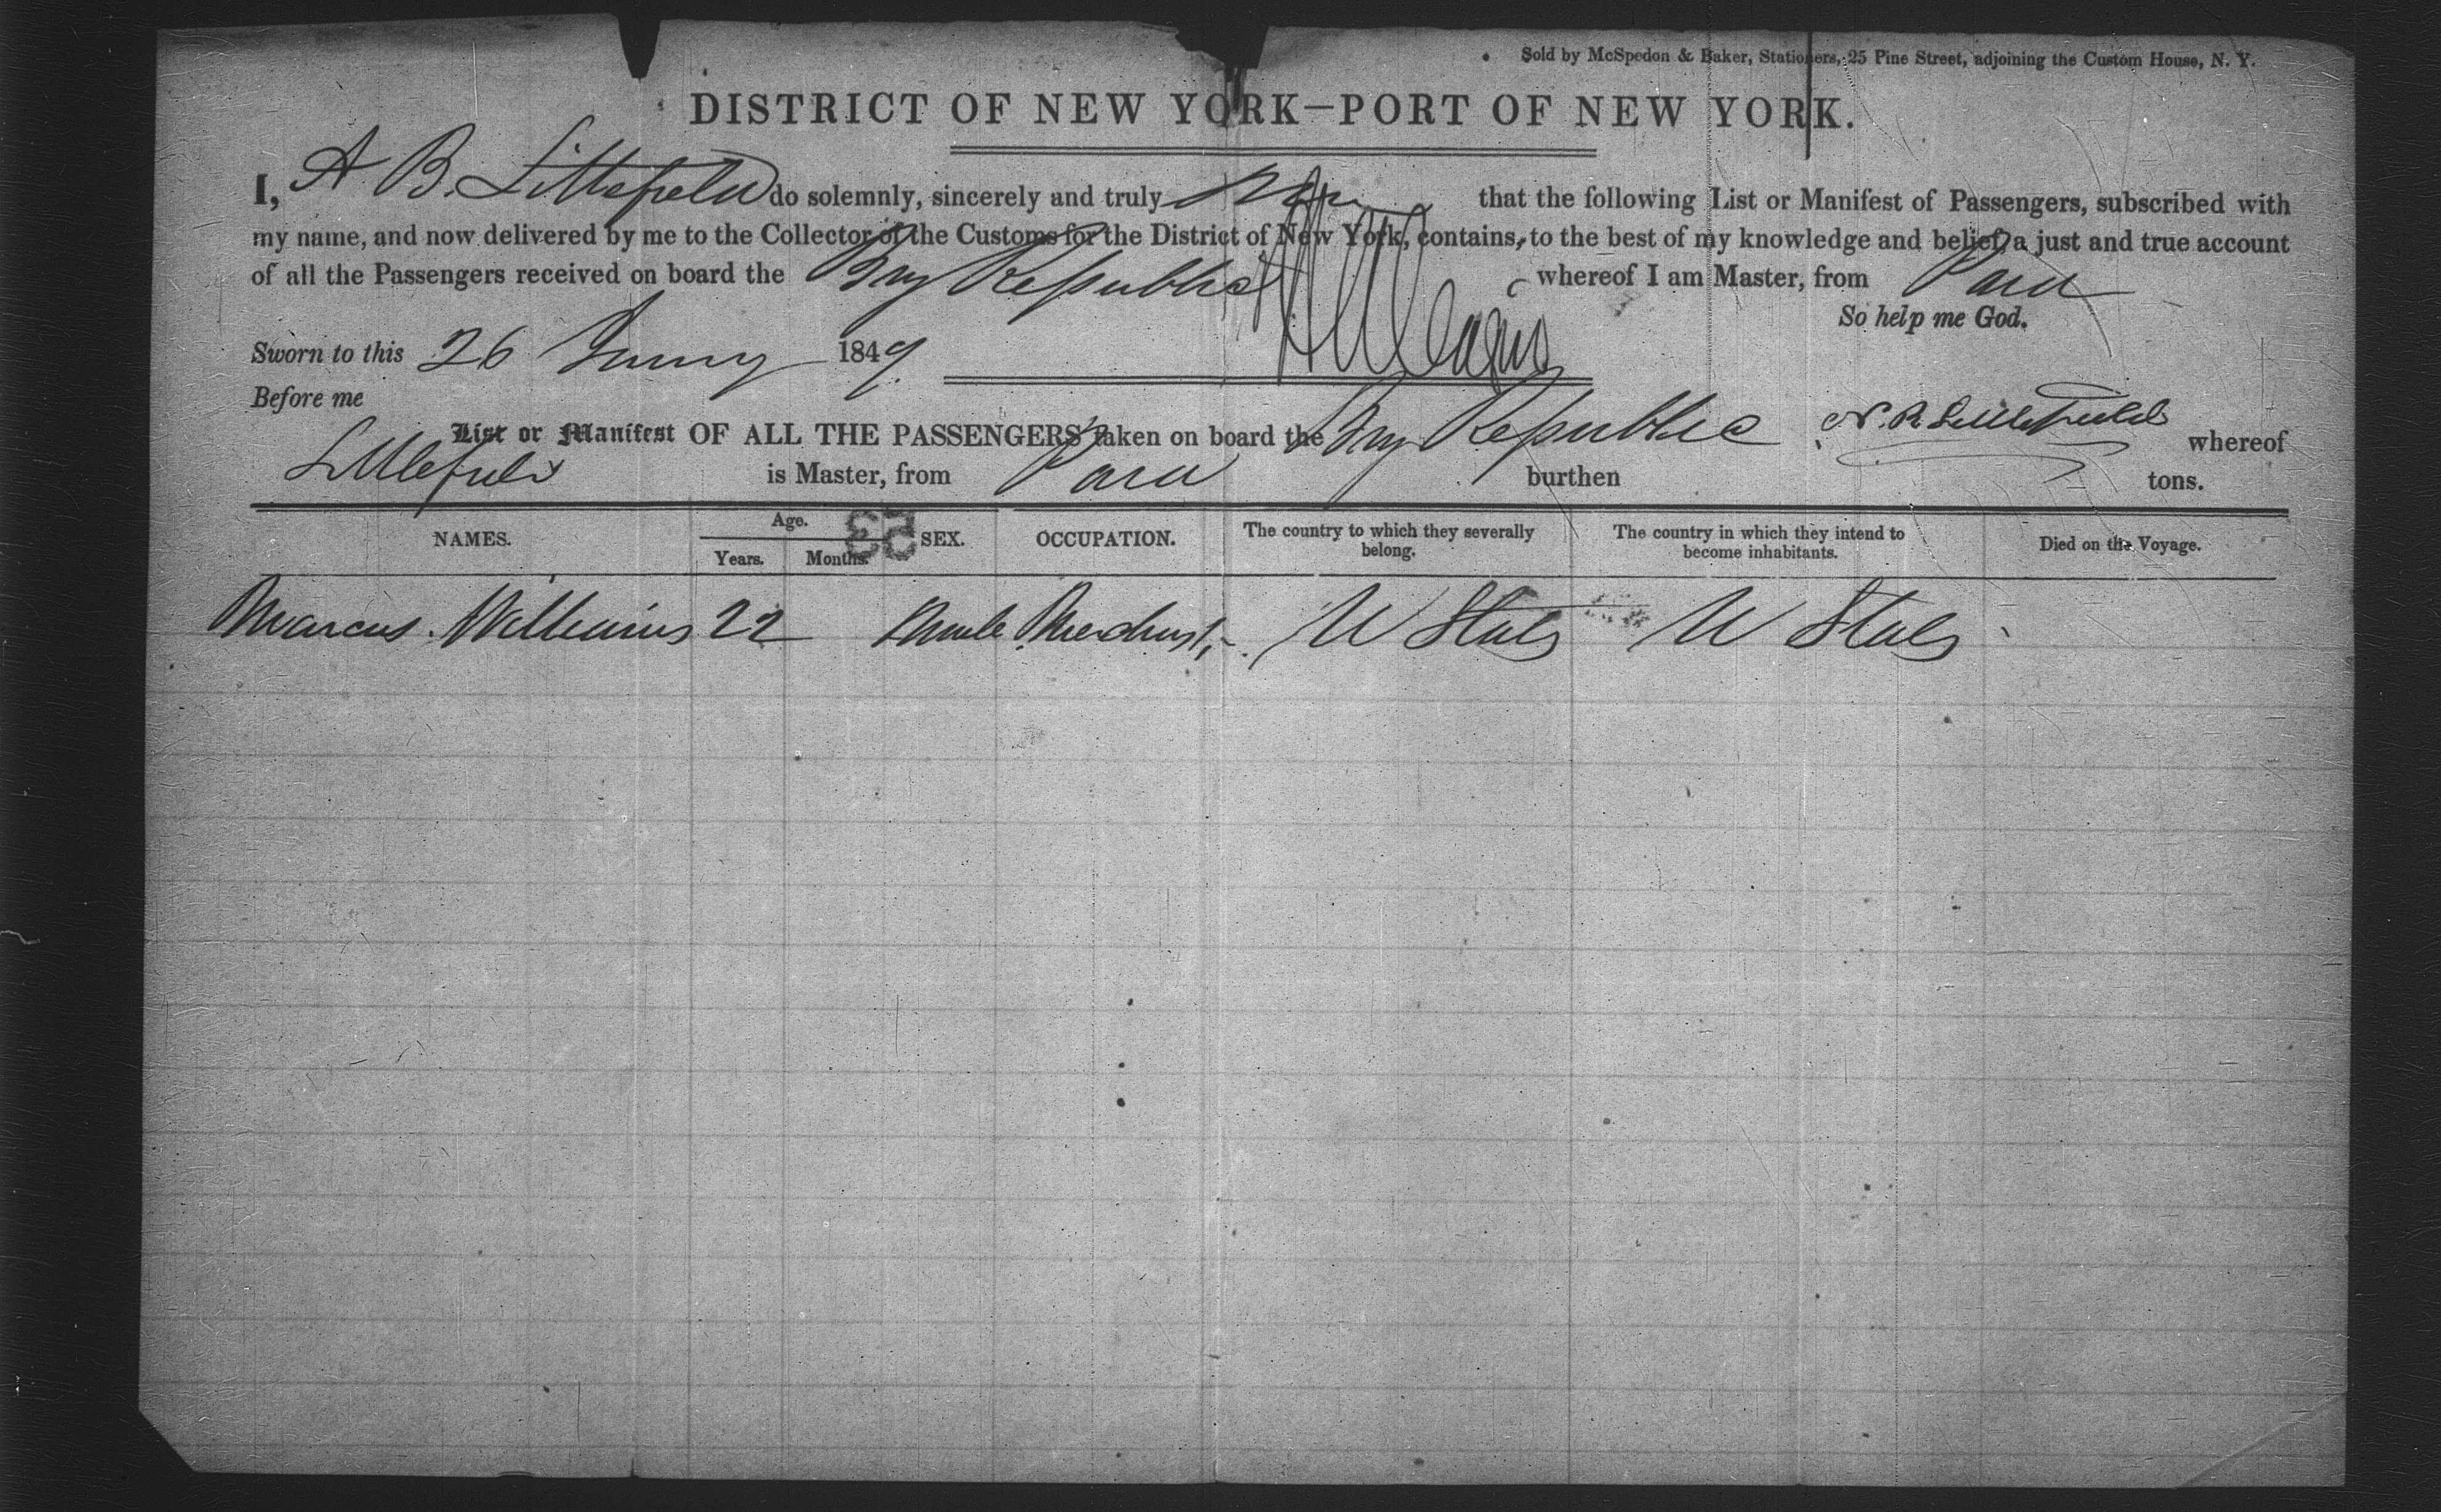 Sold by McSpedon & Baker, Stationers, 25 Pine Street, adjoining the Custom House, N. Y.
DISTRICT OF NEW YORK—PORT OF NEW YORK.
I, A B. Littlefield do solemnly, sincerely and truly that the following List or Manifest of Passengers, subscribed with
my name, and now delivered by me to the Collector of the Customs for the District of New York, contains, to the best of my knowledge and belief, a just and true account
of all the Passengers received on board the Brig Republic whereof I am Master, from Para
So help me God.
Sworn to this 26 1849
Before me
List or Manifest OF ALL THE PASSENGERS taken on board the Brig Republic whereof
Littlefield is Master, from Para burthen tons.
NAMES. Age. Years. Months. SEX. OCCUPATION. The country to which they severally belong. The country in which they intend to become inhabitants. Died on the Voyage.
53
Marcus Williams 22 Male Merchant, U States U States